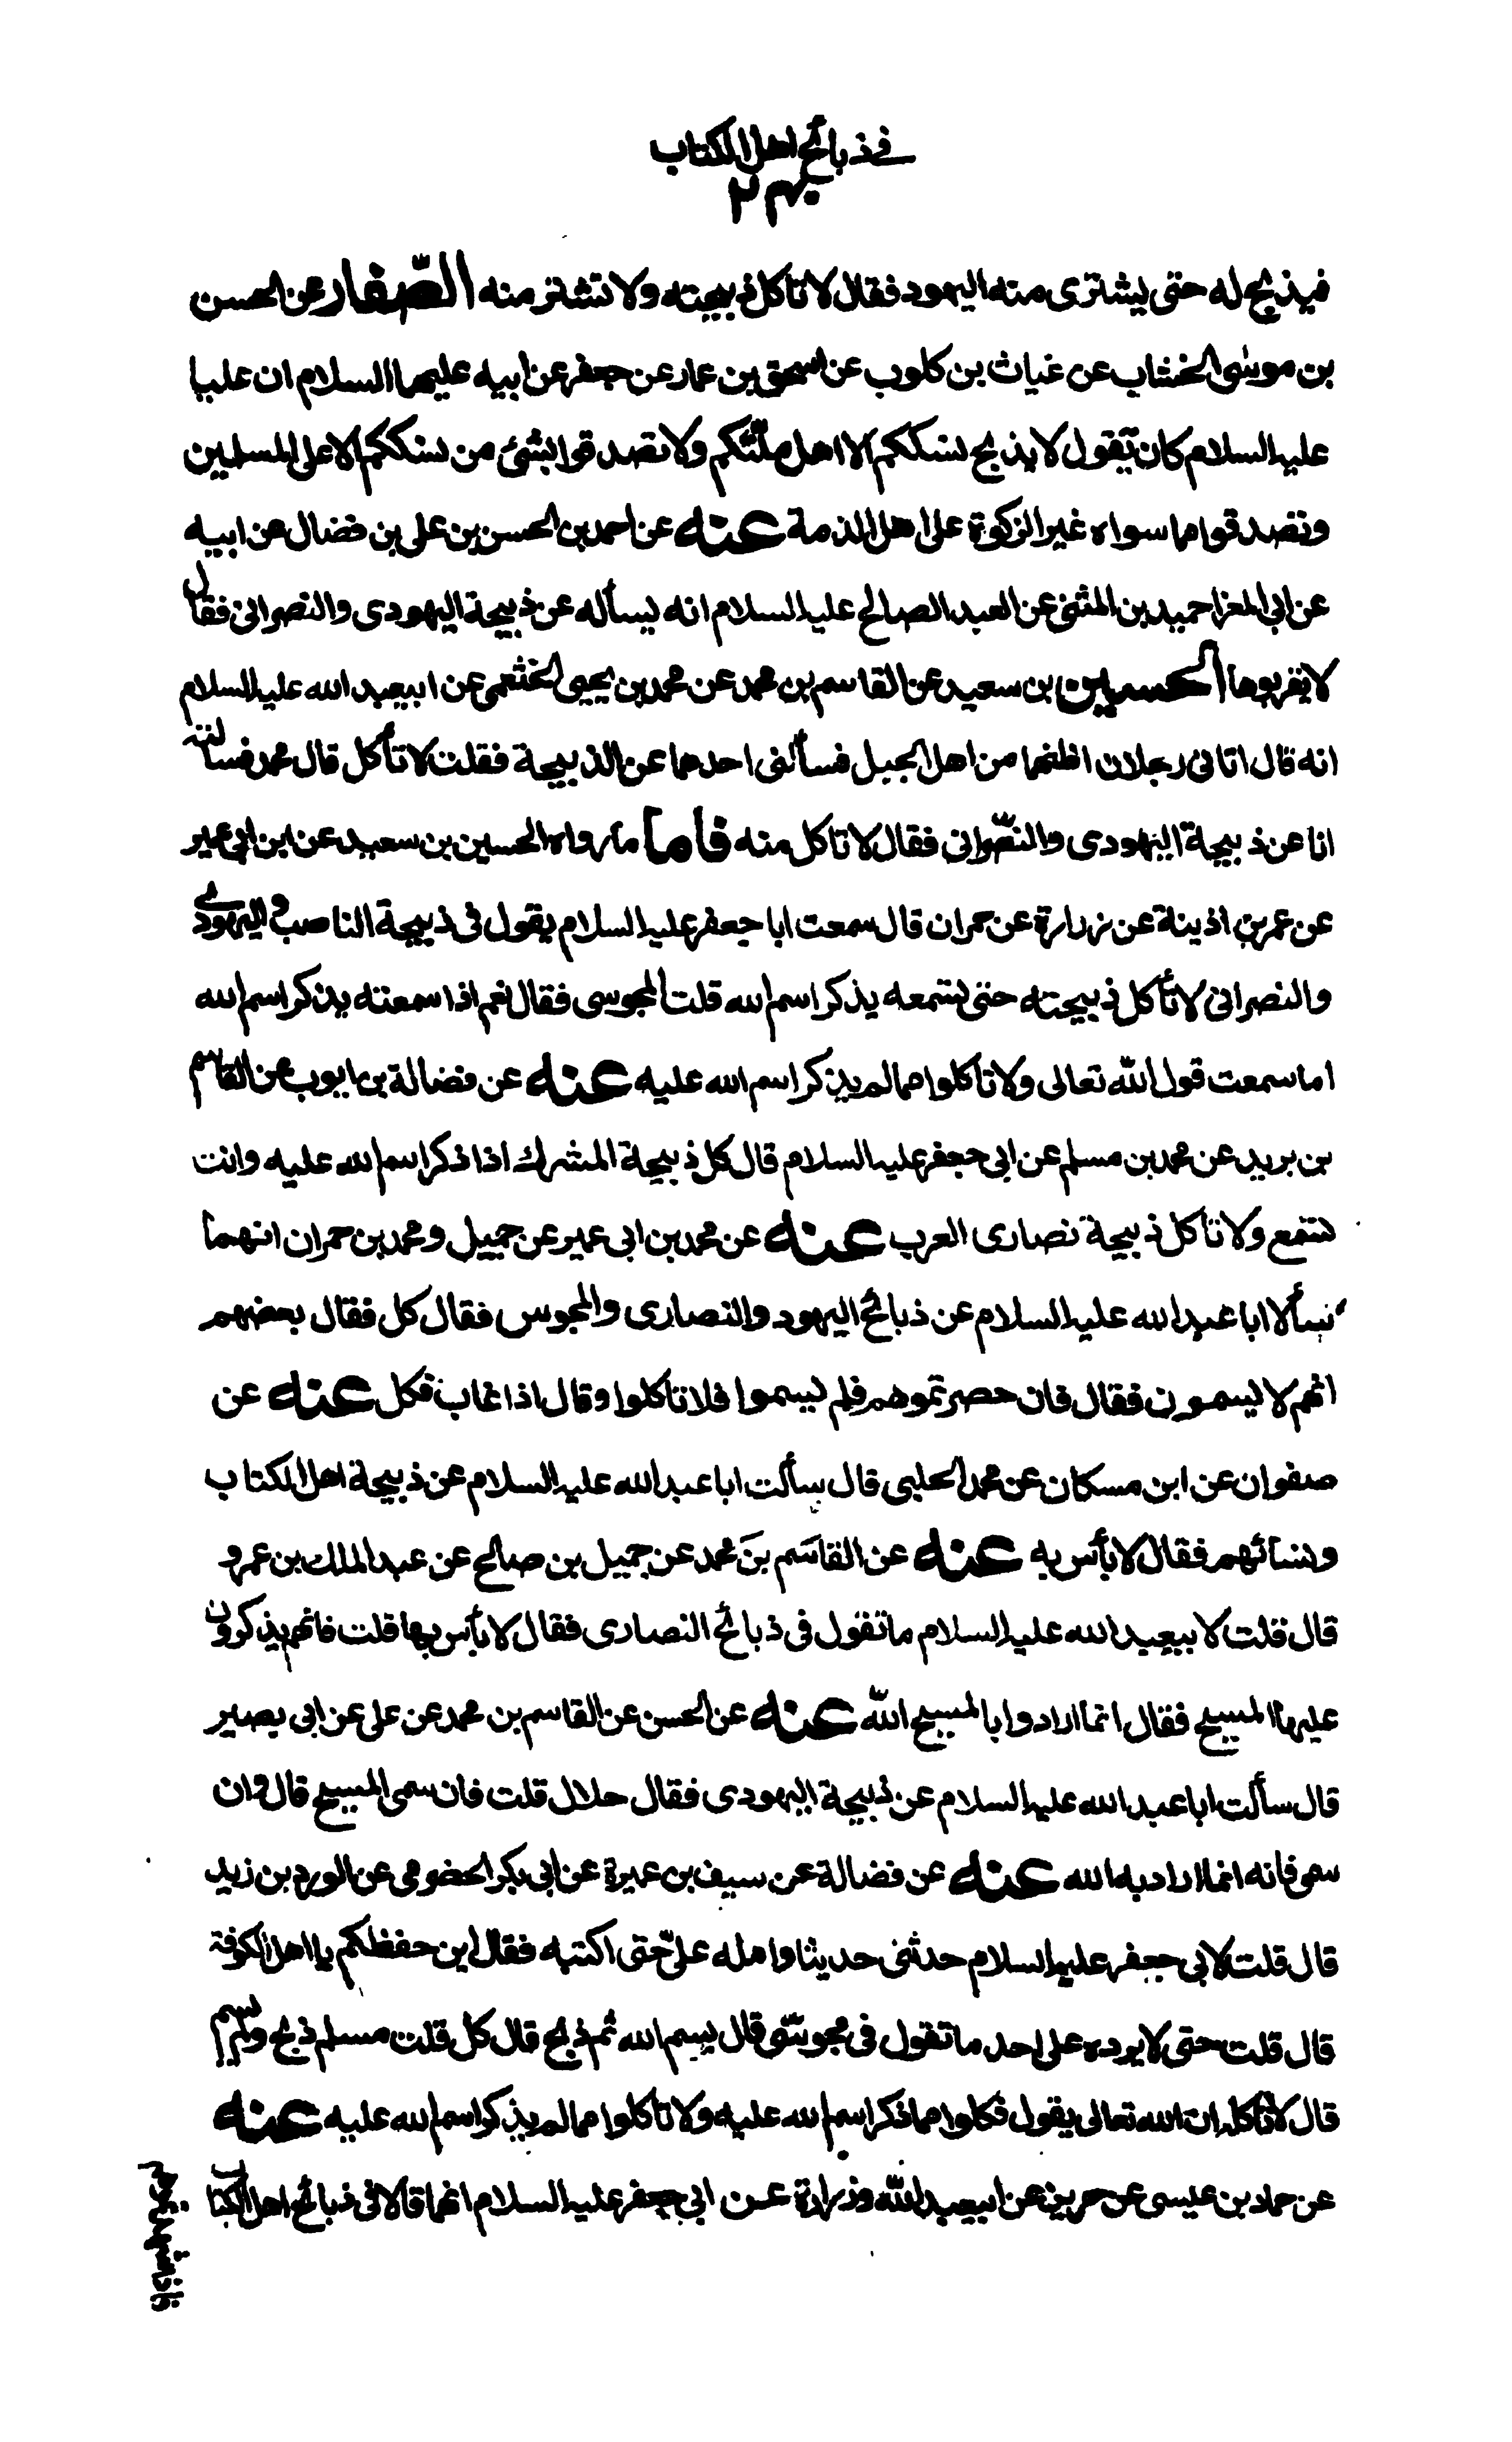 في ذبائح اهل الكتاب
فيذبح له حتى يشترى منه اليهود فقال لا تاكل ذبيحته ولا تشتر منه الصّفار عن الحسن
بن موسى الخشاب عن غياث بن كلوب عن اسحق بن عمار عن جعفر عن ابيه عليهما السلام ان عليا
عليه السلام كان يقول لا يذبح نسككم الا اهل ملّتكم ولا تصدقوا بشئ من نسككم الا على المسلمين
وتصدقوا مما سواه غير الزكوة على اهل الذمة عنه عن احمد بن الحسن بن على بن فضال عن ابيه
عن ابى المغرا حميد بن المثنى عن العبد الصالح عليه السلام انه يسأله عن ذبيحة اليهودى والنصرانى فقال
لا يقربوها الحسين بن سعيد عن القاسم بن محمد عن محمد بن يحيى الخثعمى عن ابيعبد الله عليه السلام
انه قال اتانى رجلان اظنهما من اهل الجبل فسألنى احدهما عن الذبيحة فقلت لا تأكل قال محمد فسألته
انا عن ذبيحة اليهودى والنصّرانى فقال لا تاكل منه فاما ما رواه الحسين بن سعيد عن ابن ابى عمير
عن عمر بن اذينة عن زرارة عن حمران قال سمعت ابا جعفر عليه السلام يقول فى ذبيحة الناصب واليهودى
والنصرانى لا تأكل ذبيحته حتى تسمعه يذكر اسم الله قلت المجوسى فقال نعم اذا سمعته يذكر اسم الله
اما سمعت قول الله تعالى ولا تاكلوا مما لم يذكر اسم الله عليه عنه عن فضالة بن ايوب عن القاسم
بن بريد عن محمد بن مسلم عن ابى جعفر عليه السلام قال كل ذبيحة المشرك اذا ذكر اسم الله عليه وانت
تسمع ولا تاكل ذبيحة نصارى العرب عنه عن محمد بن ابى عمير عن جميل ومحمد بن حمران انهما
سألا ابا عبد الله عليه السلام عن ذبائح اليهود والنصارى والمجوس فقال كل فقال بعضهم
انهم لا يسمون فقال فان حضرتموهم فلم يسموا فلا تاكلوا وقال اذا غاب فكل عنه عن
صفوان عن ابن مسكان عن محمد الحلبى قال سألت ابا عبد الله عليه السلام عن ذبيحة اهل الكتاب
ونسائهم فقال لا بأس به عنه عن القاسم بن محمد عن جميل بن صالح عن عبد الملك بن عمرو
قال قلت لابيعبد الله عليه السلام ما تقول فى ذبائح النصارى فقال لا بأس بها قلت فانهم يذكرون
عليها المسيح فقال انما ارادوا بالمسيح الله عنه عن الحسن عن القاسم بن محمد عن على عن ابى بصير
قال سألت ابا عبد الله عليه السلام عن ذبيحة اليهودى فقال حلال قلت فان سمى المسيح قال وان
سمى فانه انما اراد به الله عنه عن فضالة عن سيف بن عميرة عن ابى بكر الحضرمى عن الورد بن زيد
قال قلت لابى جعفر عليه السلام حدثنى حديثا وامله علىّ حتى اكتبه فقال اين حفظكم يا اهل الكوفة
قال قلت حتى لا يرده على احد ما تقول فى مجوسى قال بسم الله ثم ذبح قال كل قلت مسلم ذبح ولم يسم
قال لا تأكل ان الله تعالى يقول فكلوا مما ذكر اسم الله عليه ولا تاكلوا مما لم يذكر اسم الله عليه عنه
عن حماد بن عيسى عن حريز عن ابيعبد الله وزرارة عن ابى جعفر عليه السلام انهما قالا فى ذبائح اهل الكتاب